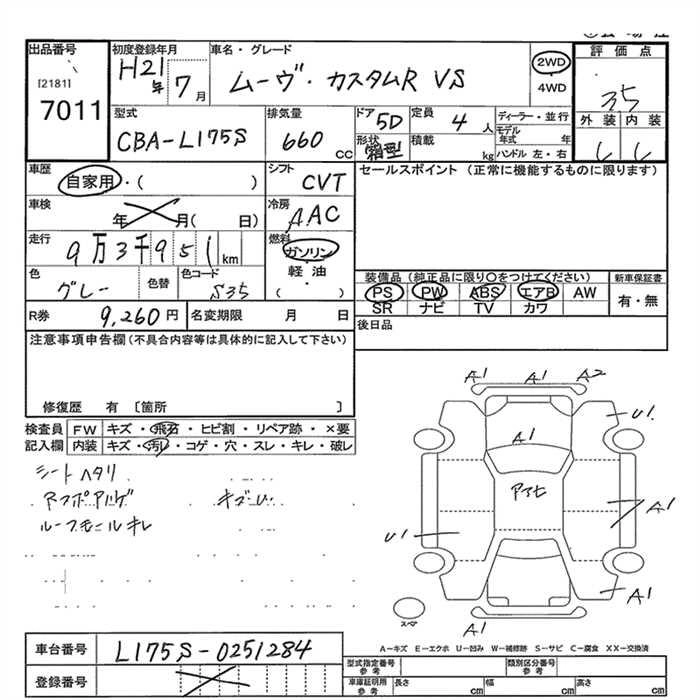 出品番号
[2181]
7011
初度登録年月
H21年 7月
車名・グレード
ムーヴ・カスタムR VS
2WD
4WD
評価点
3.5
外装 内装
型式
CBA-L175S
排気量
660 CC
ドア 5D
形状 箱型
定員 4人
積載 kg
ディーラー・並行
モデル年式 年
ハンドル 左・右
車歴
自家用・( )
シフト
CVT
セールスポイント (正常に機能するものに限ります)
車検
年 月( 日)
冷房
AAC
走行
9万3千951km
燃料
ガソリン
軽・油
( )
色
グレー
色替
色コード
S35
装備品(純正品に限り○をつけてください)
PS PW ABS エアB AW
SR ナビ TV カワ
新車保証書
有・無
R券 9,260円
名変期限 月 日
後日品
注意事項申告欄(不具合内容等は具体的に記入して下さい)
修復歴 有 〔箇所 〕
検査員記入欄
FW キズ・飛石・ヒビ割・リペア跡・×要
内装 キズ・汚レ・コゲ・穴・スレ・キレ・破レ
シートヘタリ
キズ・U
ルーフモールキレ
A1 A1 A2
U1
A1
A1
U1
A1
A1
A-キズ E-エクボ U-凹み W-補修跡 S-サビ C-腐食 XX-交換済
車台番号 L175S-0251284
登録番号
型式指定番号 参考
類別区分番号 参考
車庫証明用 参考
長さ cm 幅 cm 高さ cm